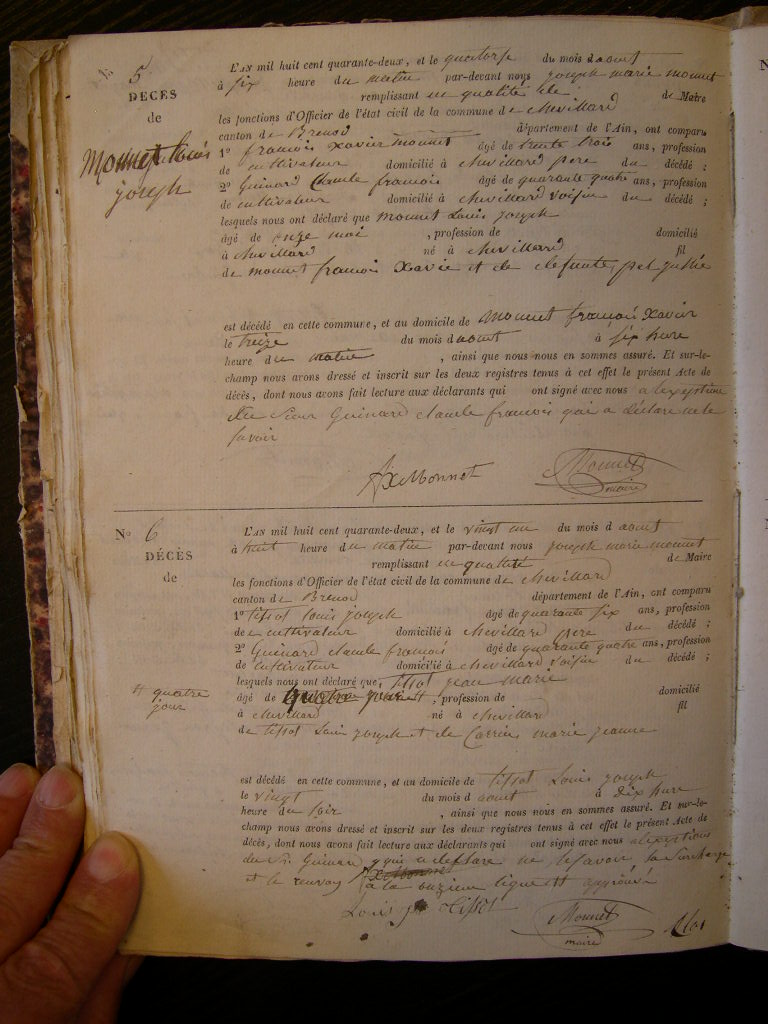 N° 5
DÉCÈS
de
Monnet Louis
joseph
L'AN mil huit cent quarante-deux, et le quatorse du mois d aout
à six heure du matin par-devant nous joseph marie monnet
remplissant en qualité de de Maire
les fonctions d'Officier de l'état civil de la commune de chevillard
canton de Brenod département de l'Ain, ont comparu
1° francois xavier monnet âgé de trente trois ans, profession
de cultivateur domicilié à chevillard pere du décédé ;
2° Guinard Claude francois âgé de quarante quatre ans, profession
de cultivateur domicilié à chevillard voisin du décédé ;
lesquels nous ont déclaré que monnet Louis joseph
âgé de onze moi , profession de domicilié
à chevillard né à chevillard fil
de monnet francois Xavie et de defunte
est décédé en cette commune, et au domicile de Monnet francois Xavier
le treize du mois d aout à six hure
heure du matin , ainsi que nous nous en sommes assuré. Et sur-le-
champ nous avons dressé et inscrit sur les deux registres tenus à cet effet le présent Acte de
décès, dont nous avons fait lecture aux déclarants qui ont signé avec nous a lexeption
du sieur Guinard claude francois qui a déclaré ne le
savoir
fx Monnet Monnet
maire
N° 6
DÉCÈS
de
L'AN mil huit cent quarante-deux, et le vingt un du mois d aout
à huit heure du matin par-devant nous joseph marie monnet
remplissant en qualité de Maire
les fonctions d'Officier de l'état civil de la commune de chevillard
canton de Brenod département de l'Ain, ont comparu
1° tissot louis joseph âgé de quarante six ans, profession
de cultivateur domicilié à chevillard pere du décédé ;
2° Guinard claude francois âgé de quarante quatre ans, profession
de cultivateur domicilié à chevillard voisin du décédé ;
lesquels nous ont déclaré que tissot jean marie
# quatre
jour
âgé de quatre jour # , profession de domicilié
à chevillard né à chevillard fil
de tissot Louis joseph et de Carrier marie jeanne
est décédé en cette commune, et au domicile de tissot Louis joseph
le vingt du mois d aout à dix hure
heure du soir , ainsi que nous nous en sommes assuré. Et sur-le-
champ nous avons dressé et inscrit sur les deux registres tenus à cet effet le présent Acte de
décès, dont nous avons fait lecture aux déclarants qui ont signé avec nous a lexeption
du Sr. Guinard qui a declare ne le savoir la surcharge
et le renvoy fx Monnet a la onzieme ligne # approuvé
Louis jh Tissot
Monnet
maire